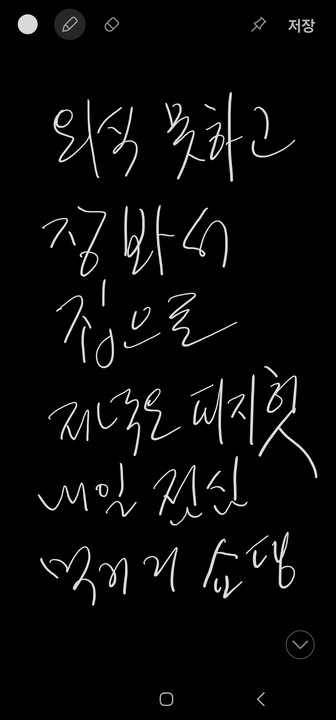 저장
외식 못하고
장 봐서
집으로
저녁은 피자헛
내일 점심
먹거리 쇼핑